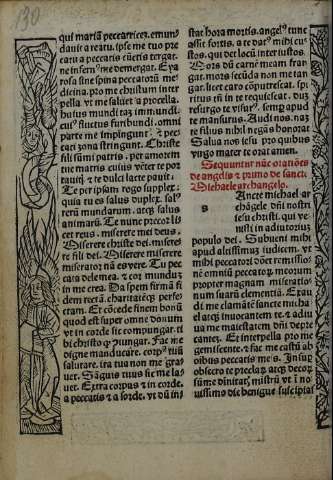 130
qui mariā peccatricē. emun⁊
dauit a reatu. ipse me tuo pre
catu a peccatis cūctis tergat.
ne infern⁹ me demergat. Exa
rosa sine spina peccatorū me⁊
dicina. pro me christum inter
pella vt me saluet a procella.
huius mundi tā immundi.
cui⁹ fluctus furibundi. omni
parte me impingunt: ⁊ pec⁊
cati zona stringunt. Christe
fili sūmi patris. per amorem
tue matris cuius vēter te por
tauit. ⁊ te dulci lacte pauit.
Te per ipsam rogo supplex:
quia tu es salus duplex. sal⁊
rerū mundarum. atq; salus
animarū. Te nunc precor lis
cet reus. miserere mei deus.
Miserere christe dei. miseres
re fili dei. Miserere miserere
miserator nā es vere. Tu pec
cata delens. ⁊ cor mundus
in me crea. Da spem firmā fi
dem rectā. charitatēq; perfec
tam. Et cōcede finem bonū
quod est super omne donum
vt in corde sic compungar. ti
bi christo q̄ iungar. Fac me
digne manducare. corp⁹ tuū
salutare. ita tua non me gra⁊
uet. Sāguis tuus sic me la⁊
uet. Extra corpus ⁊ in corde.
a peccatis ⁊ a sorde. vt dū in⁊
stat hora mortis. angel⁹ tunc
assit fortis. a te dat⁹ mihi cus
stos. qui det locū inter iustos.
Mors dū carnē meam fran⁊
gat. mors secūda non me tan
gat. licet caro cōputrescat. spi
ritus mī in te requiescat. dū
resurgo te visur⁹. semp apud
te mansurus. Audi nos. nāz
te filius nihil negās honorat
Salua nos iesu pro quibus
virgo mater te orat amen.
Sequuntur nūc oratiões
de angelis ⁊ primo de sancto
Michaele archangelo.
s Ancte michael ar
changele dñi nostri
iesu christi. qui ve⁊
nisti in adiutoriū
populo dei. Subueni mihi
apud altissimum iudicem. vt
mihi peccatori donet remissio
nē omniū peccatoꝝ meorum
propter magnam miseratio⁊
nem suam clementiā. Exau
di me clamātē sancte micha
el atq; inuocantem te. ⁊ adiu
ua me maiestatem dñi depre
cantē. Et interpella pro me
gemiscente. ⁊ fac me castū ab
oibus peccatis meis. Insup
obsecro te preclarē atq; decor⁊
sūme diuinitatis ministrū vt ī no⁊
uissimo die benigne suscipias